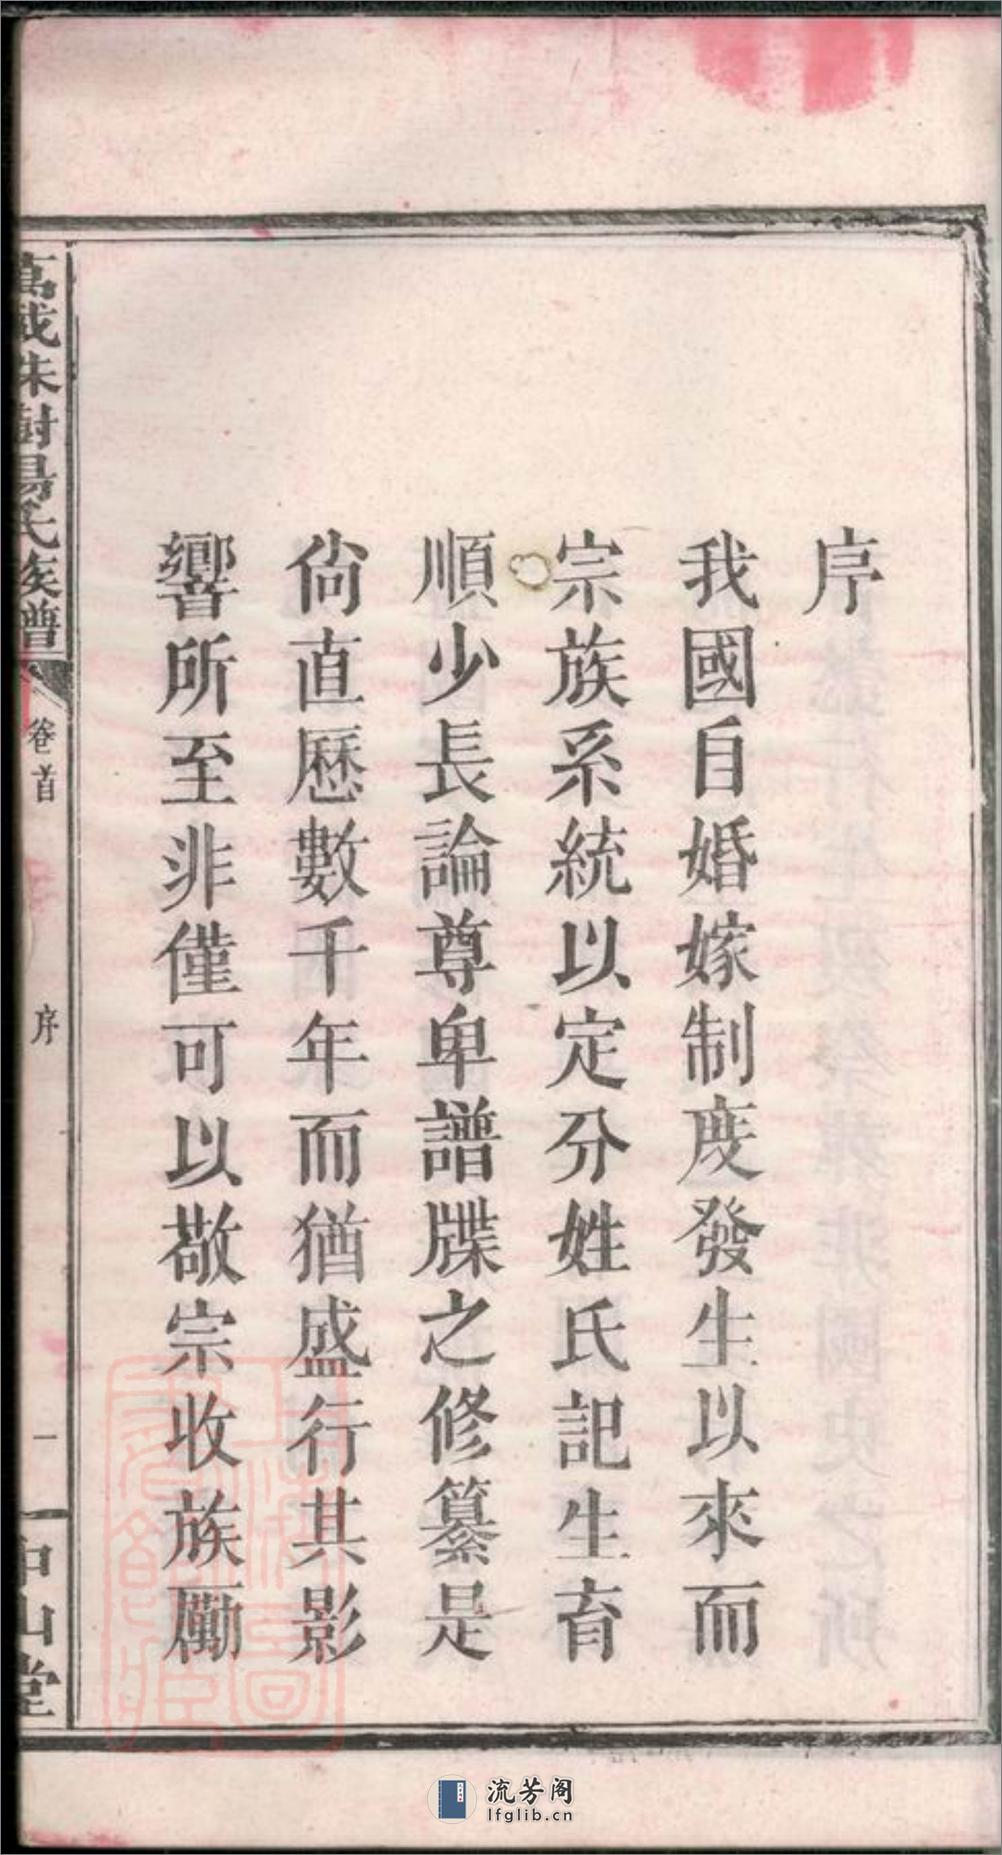 序
我國自婚嫁制度發生以來而
宗族系統以定分姓氏記生育
順少長論尊卑譜牒之修纂是
尙直歷數千年而猶盛行其影
響所至非僅可以敬宗收族勵
萬載株樹易氏族譜
卷首
序
一
中山堂
流芳阁
lfglib.cn